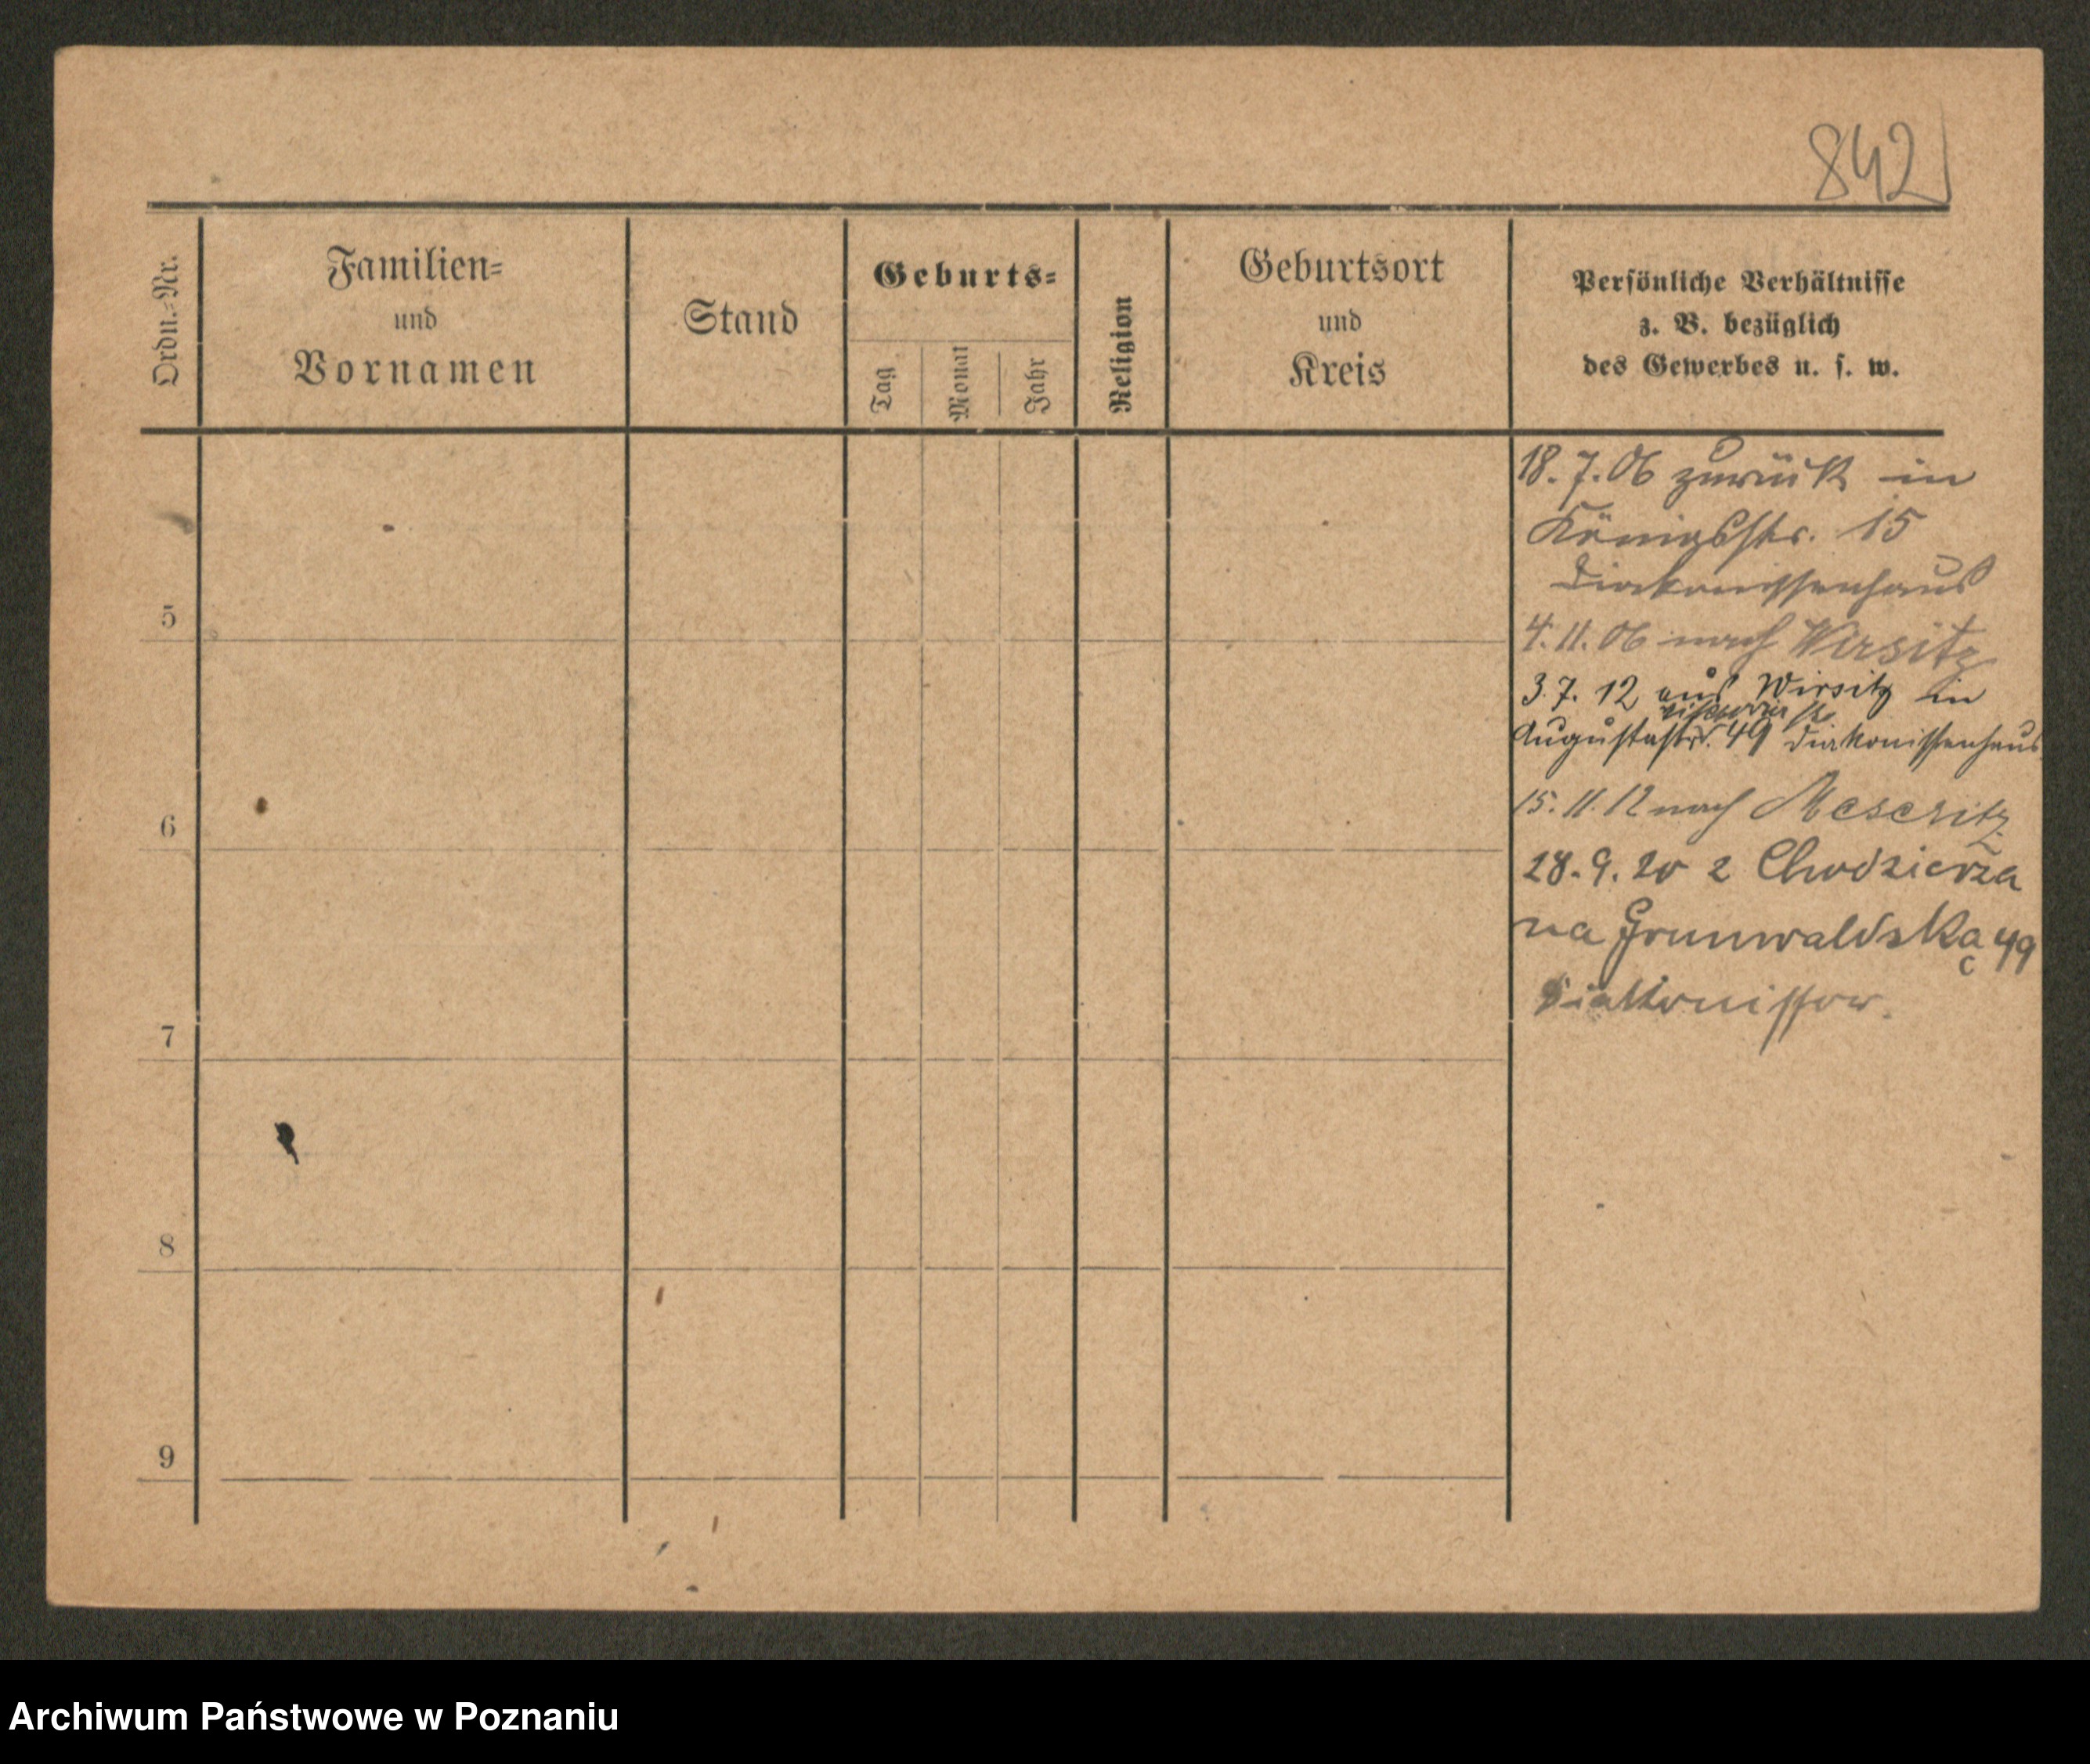 842
Ordn.-Nr.
Familien-
und
Vornamen
Stand
Geburts-
Tag
Monat
Jahr
Religion
Geburtsort
und
Kreis
Persönliche Verhältnisse
z. B. bezüglich
des Gewerbes u. s. w.
18. 7. 06 zurück in
Königsstr. 15
Diakonissenhaus
4. 11. 06 nach Wirsitz
3. 7. 12 aus Wirsitz in
Augustastr. 49 Diakonissenhaus
15. 11. 12 nach Meseritz
28. 9. 20 z Chodzieża
na Grunwaldską 49
5
6
7
8
9
Archiwum Państwowe w Poznaniu